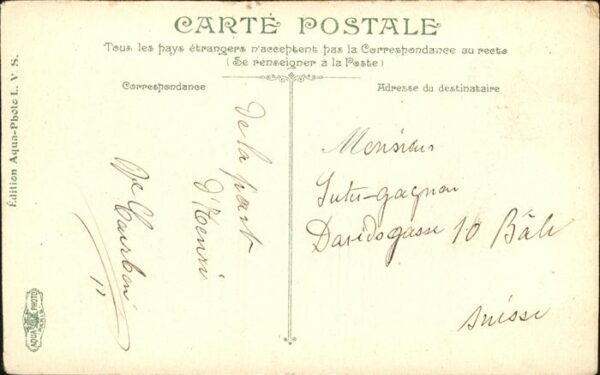 CARTE POSTALE
Tous les pays étrangers n'acceptent pas la Correspondance au recto
(Se renseigner à la Poste)
Correspondance
Adresse du destinataire
De la part
d'Henri
Monsieur
Davidsgasse 10 Bâle
Suisse
Édition Aqua-Photo L. V. S.
AQUA PHOTO
PARIS